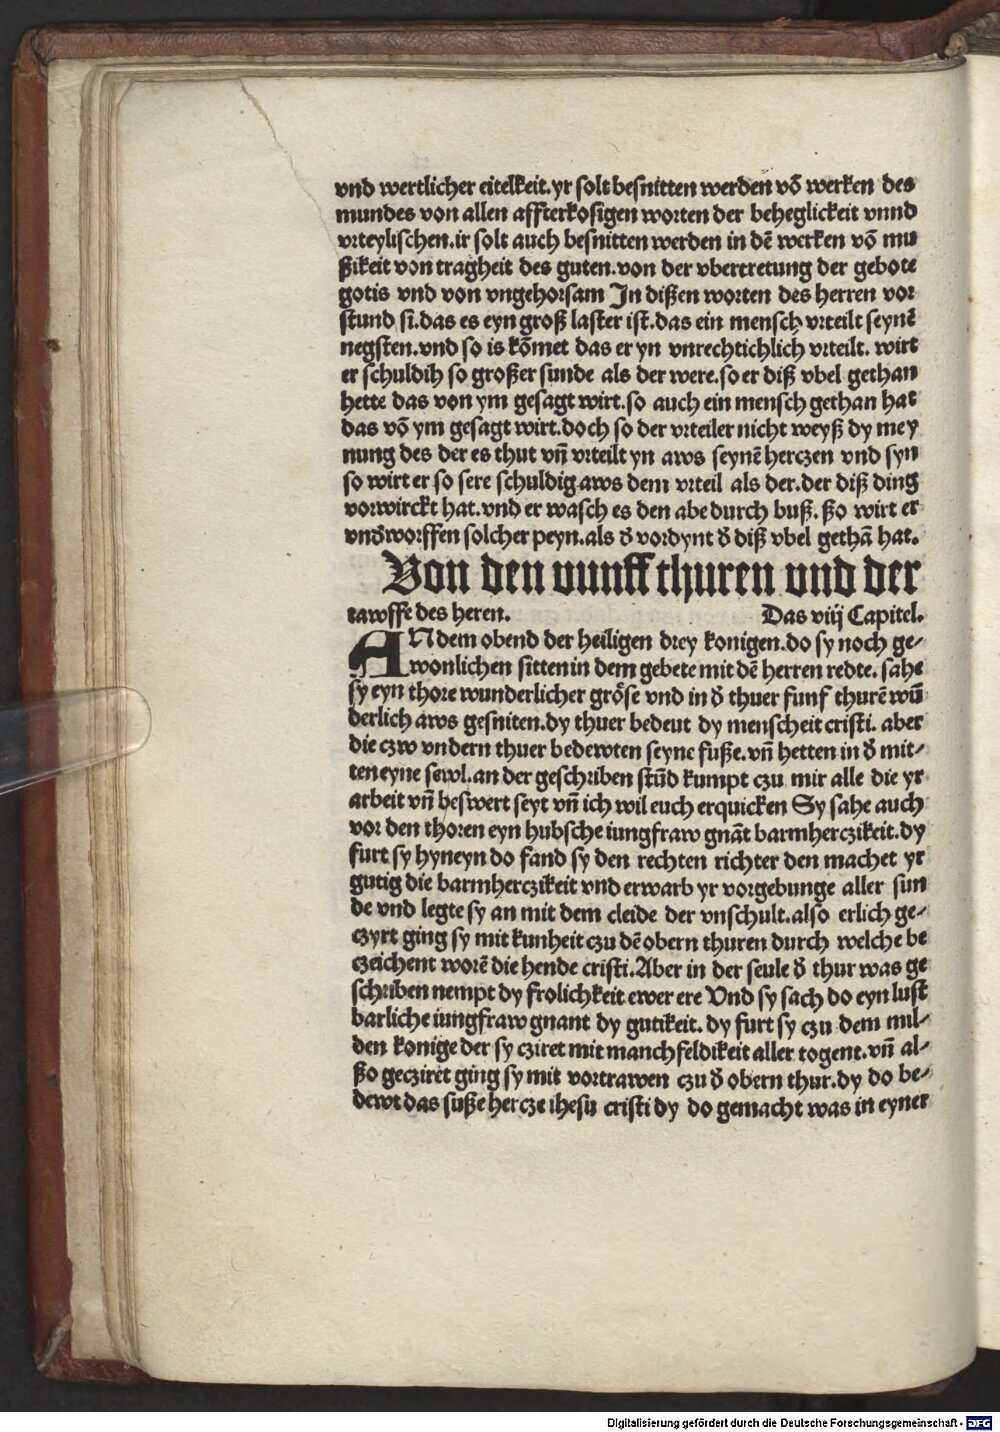 vnd wertlicher eitelkeit.yr solt besnitten werden vō werken des
mundes von allen affterkosigen worten der beheglickeit vnnd
vrteylischen.ir solt auch besnitten werden in dē werken vō mu
ßikeit von tragheit des guten.von der vbertretung der gebote
gotis vnd von vngehorsam In dißen worten des herren vor
stund si.das es eyn groß laster ist.das ein mensch vrteilt seynē
negsten.vnd so is kōmet das er yn vnrechtichlich vrteilt. wirt
er schuldih so großer sunde als der were.so er diß vbel gethan
hette das von ym gesagt wirt.so auch ein mensch gethan hat
das vō ym gesagt wirt.doch so der vrteiler nicht weyß dy mey
nung des der es thut vn̄ vrteilt yn aws seynē herczen vnd syn
so wirt er so sere schuldig aws dem vrteil als der.der diß ding
vorwirckt hat.vnd er wasch es den abe durch buß. ßo wirt er
vnđworffen solcher peyn.als đ vordynt đ diß vbel gethā hat.
Von den vunff thuren vnd der
tawffe des heren. Das viij Capitel.
ANdem obend der heiligen drey konigen.do sy noch ge-
wonlichen sitten in dem gebete mit dē herren redte. sahe
sy eyn thore wunderlicher grōse vnd in đ thuer funf thurē wū
derlich aws gesniten.dy thuer bedeut dy menscheit cristi. aber
die czw vndern thuer bedewten seyne fuße.vn̄ hetten in đ mit-
ten eyne sewl.an der geschriben stūd kumpt czu mir alle die yr
arbeit vn̄ beswert seyt vn̄ ich wil euch erquicken Sy sahe auch
vor den thoren eyn hubsche iungfraw gnāt barmherczikeit.dy
furt sy hyneyn do fand sy den rechten richter den machet yr
gutig die barmherczikeit vnd erwarb yr vorgebunge aller sun
de vnd legte sy an mit dem cleide der vnschult.also erlich ge-
czyrt ging sy mit kunheit czu dē obern thuren durch welche be
czeichent worē die hende cristi.Aber in der seule đ thur was ge
schriben nempt dy frolichkeit ewer ere Vnd sy sach do eyn lust
barliche iungfraw gnant dy gutikeit. dy furt sy czu dem mil-
den konige der sy cziret mit manchfeldikeit aller togent.vn̄ al-
ßo gecziret ging sy mit vortrawen czu đ obern thur.dy do be-
dewt das suße hercze ihesu cristi dy do gemacht was in eyner
Digitalisierung gefördert durch die Deutsche Forschungsgemeinschaft - DFG